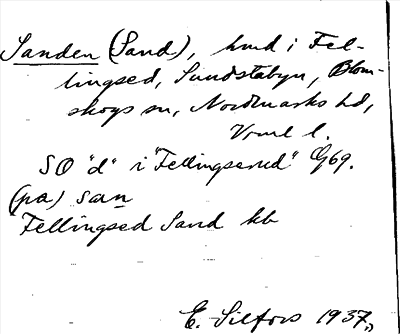 Sanden (Sand), hmd i Fel-
lingsed, Sundstabyn, Blom-
skogs sn, Nordmarks hd,
Vrml l.
SO "d" i "Fellingserud" G69.
(pa) san
Fellingsed Sand kb
E. Silfors 1937.